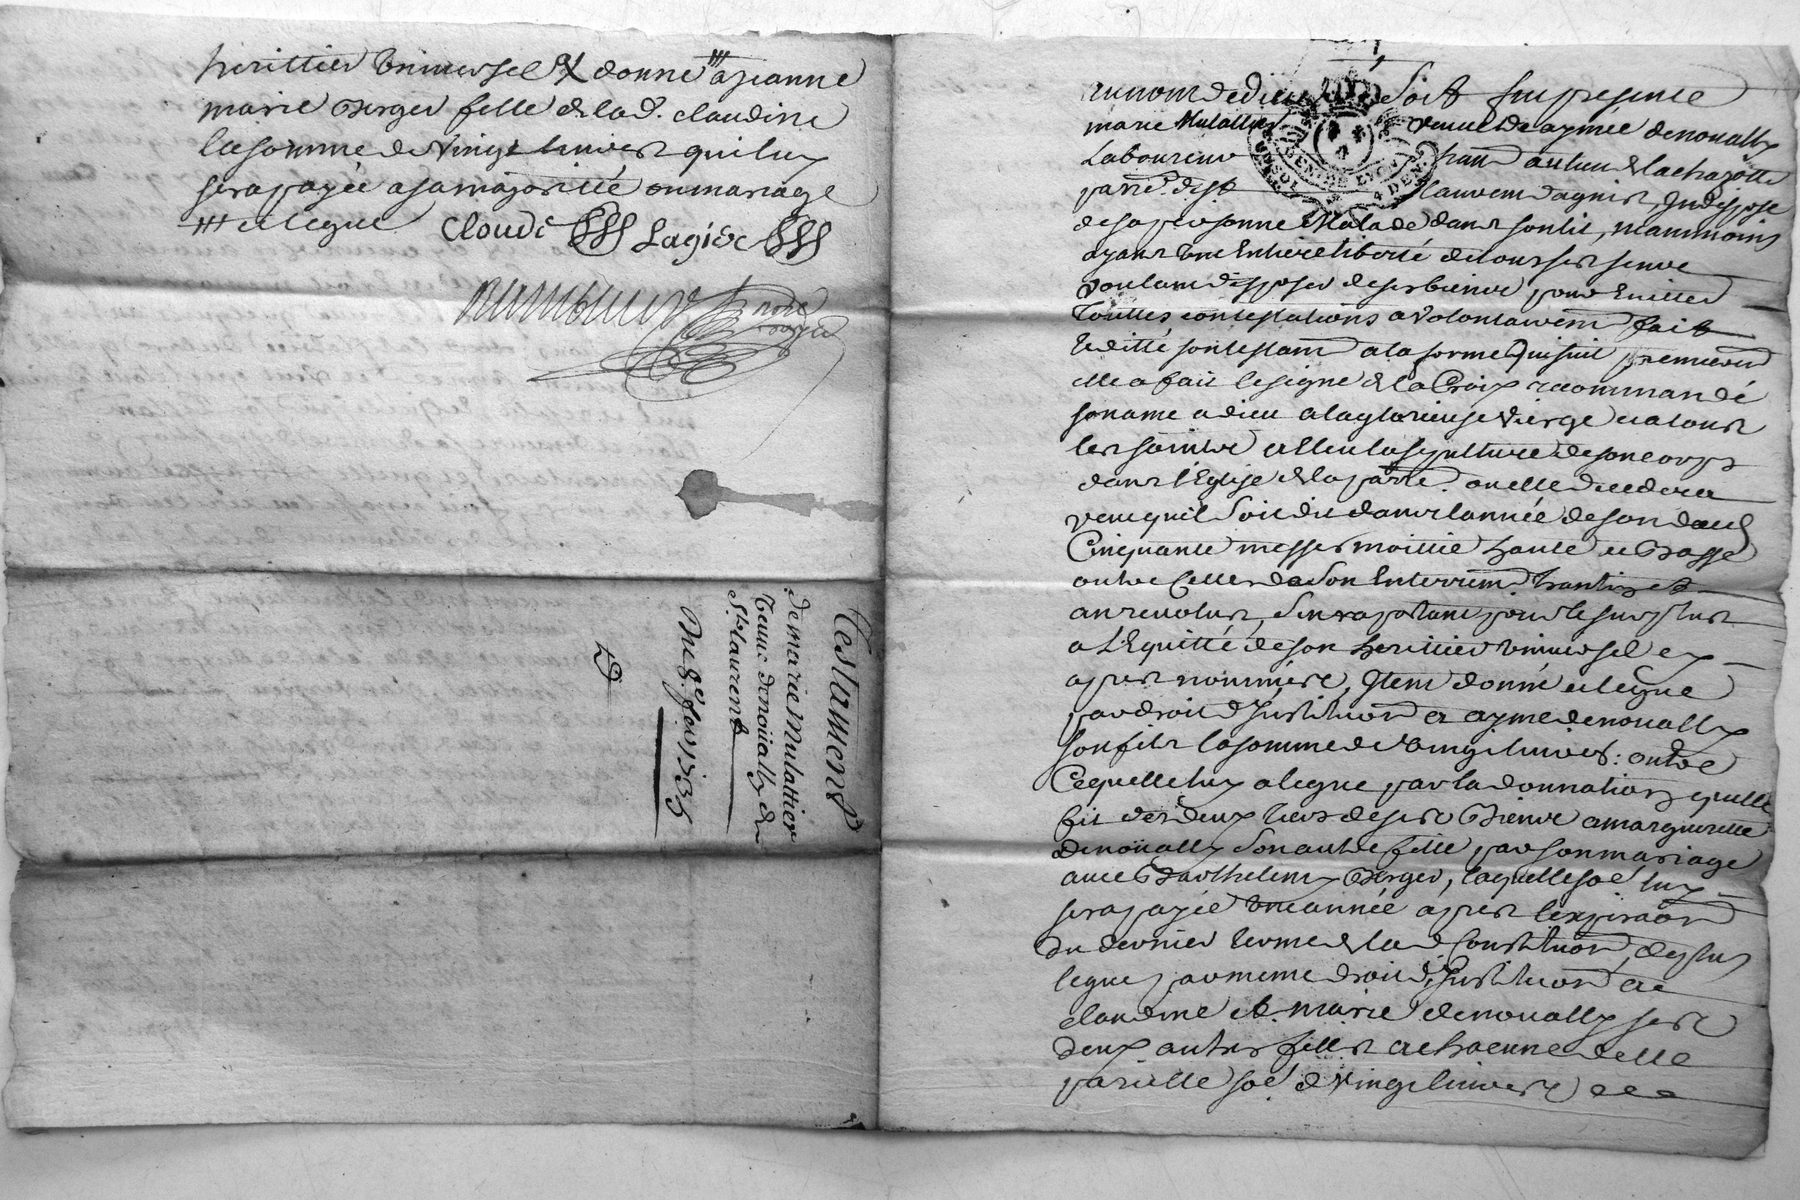 herittier universel & donne a jeanne
marie Berger fille de lad. claudine
la somme de vingt livres qui luy
sera payée a sa majoritté ou mariage
et legue Claude Lagier
notre
royal
Testament
de marie Mulattier
veuve denoüally de
St. laurent
Du 8e. fev. 1735
au nom de dieu soit fut presente
marie Mulattier veuve de aymée denoually
Laboureur au lieu de la chazotte
parre. de st laurent dagnis, Indispose
de sa personne Malade dans son lit, neammoins
ayant une Entiere liberté de tous ses sens
voulant disposer de ses biens pour Eviter
touttes contestations a volontairem fait
Edicté son testam a la forme qui suit premierem
elle a fait le signe de la Croix recommandé
son ame a dieu a la glorieuse vierge et a tous
les saints esleu la sepulture de son corps
dans l'Eglise de la parre. ou elle decedera
veut quil soit dit dans lannée de son deces
Cinquante messes moittié haute et Basse
outre Celles de son Enterrem.
an revolus, sen raportant pour le surplus
a l'Equitté de son heritier universel cy
apres nommére, Item donne et legue
par droit d'Institution a aymé denoually
son fils la somme de vingt livres: outre
Ce quelle luy a legue par la donnation quelle
fit des deux tiers de ses Biens a margueritte
denoüally son autre fille par son mariage
avec Barthelemy Berger, laquelle soe luy
sera payée une année apres lexpiraon
du dernier terme de lad Constituon, de plus
legue par meme droit d'Instituon a
claudine et marie denoually ses
deux autres filles a chacunne delle
pareille soe de vingt livres